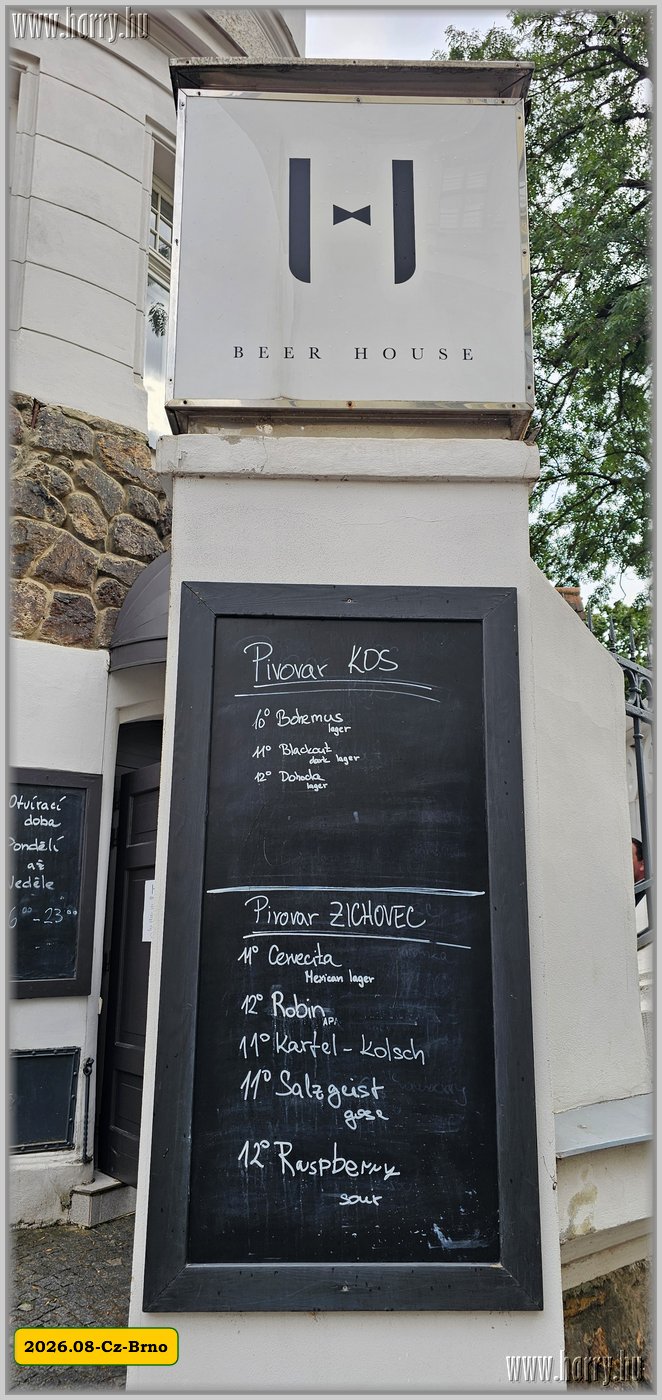 www.horry.hu
BEER HOUSE
Pivovar KOS
10° Bohemus
lager
11° Blackout
dark lager
12° Dohoda
lager
Otvírací
doba
Pondělí
až
Neděle
00 - 23 00
Pivovar ZICHOVEC
11° Cervecita
Mexican lager
12° Robin
APA
11° Kartel - Kolsch
11° Salzgeist
gose
12° Raspberry
sour
2026.08-Cz-Brno
www.horry.hu